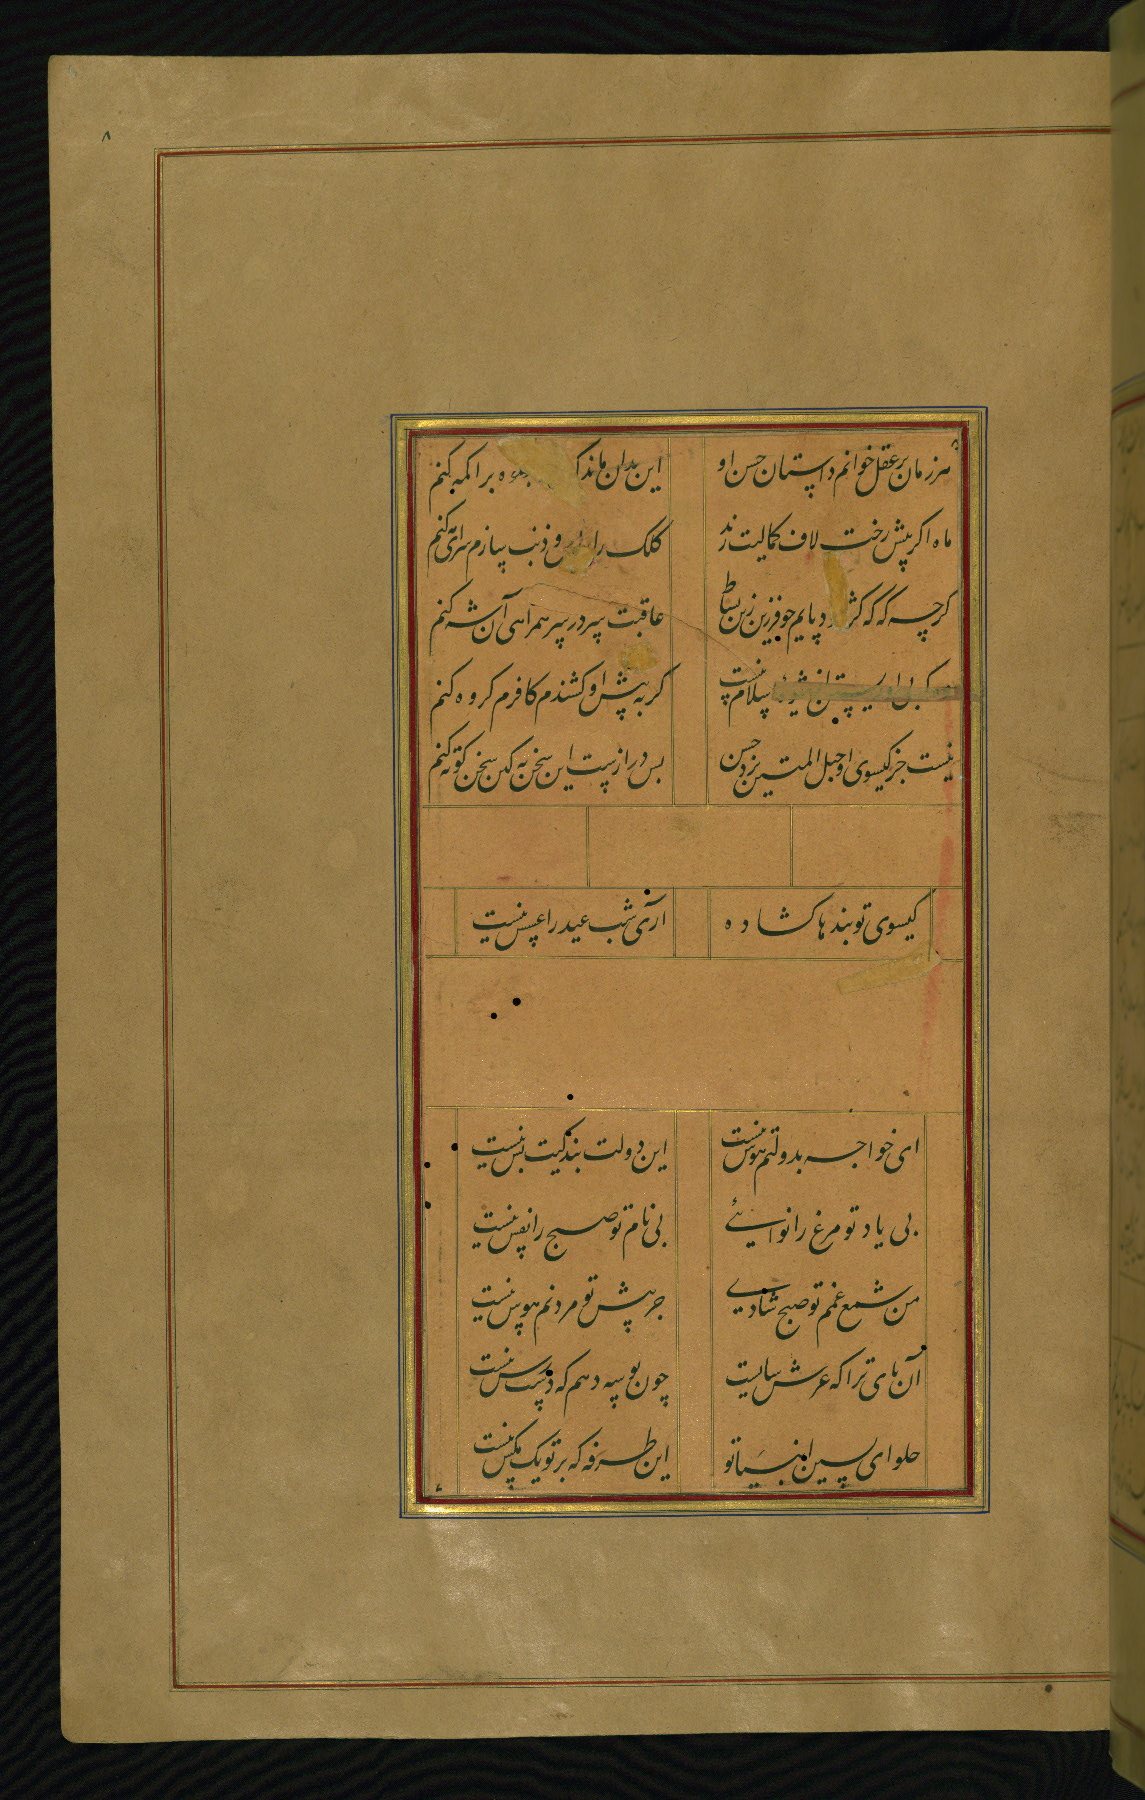 ۸
هر زمان بر عقل خوانم داستان حسن او
این بدان ماند بر اکمه کنم
ماه اگر پیش رخت لاف کمالیت زند
کلک را و ذنب سازم سرای کنم
گرچه که که پایم چو فرزین زین بساط
عاقبت سر در سر همراهی آن شه کنم
اسلام نیست
گر به پیش او کشندم کافرم گر وه کنم
نیست جز گیسوی او حبل المتین نزد حسن
بس درازست این سخن به کین سخن کوته کنم
گیسوی تو بندها کشاده
آری شب عید را عسس نیست
ای خواجه بدولتم هوس نیست
این دولت بندگیت بس نیست
بی یاد تو مرغ را نوائی
بی نام تو صبح را نفس نیست
من شمع غمم تو صبح شادی
جز پیش تو مردنم هوس نیست
آن پای ترا که عرش سایست
چون بوسه دهم که دست رس نیست
حلوای پسین انبیا تو
این طرفه که بر تو یک مگس نیست